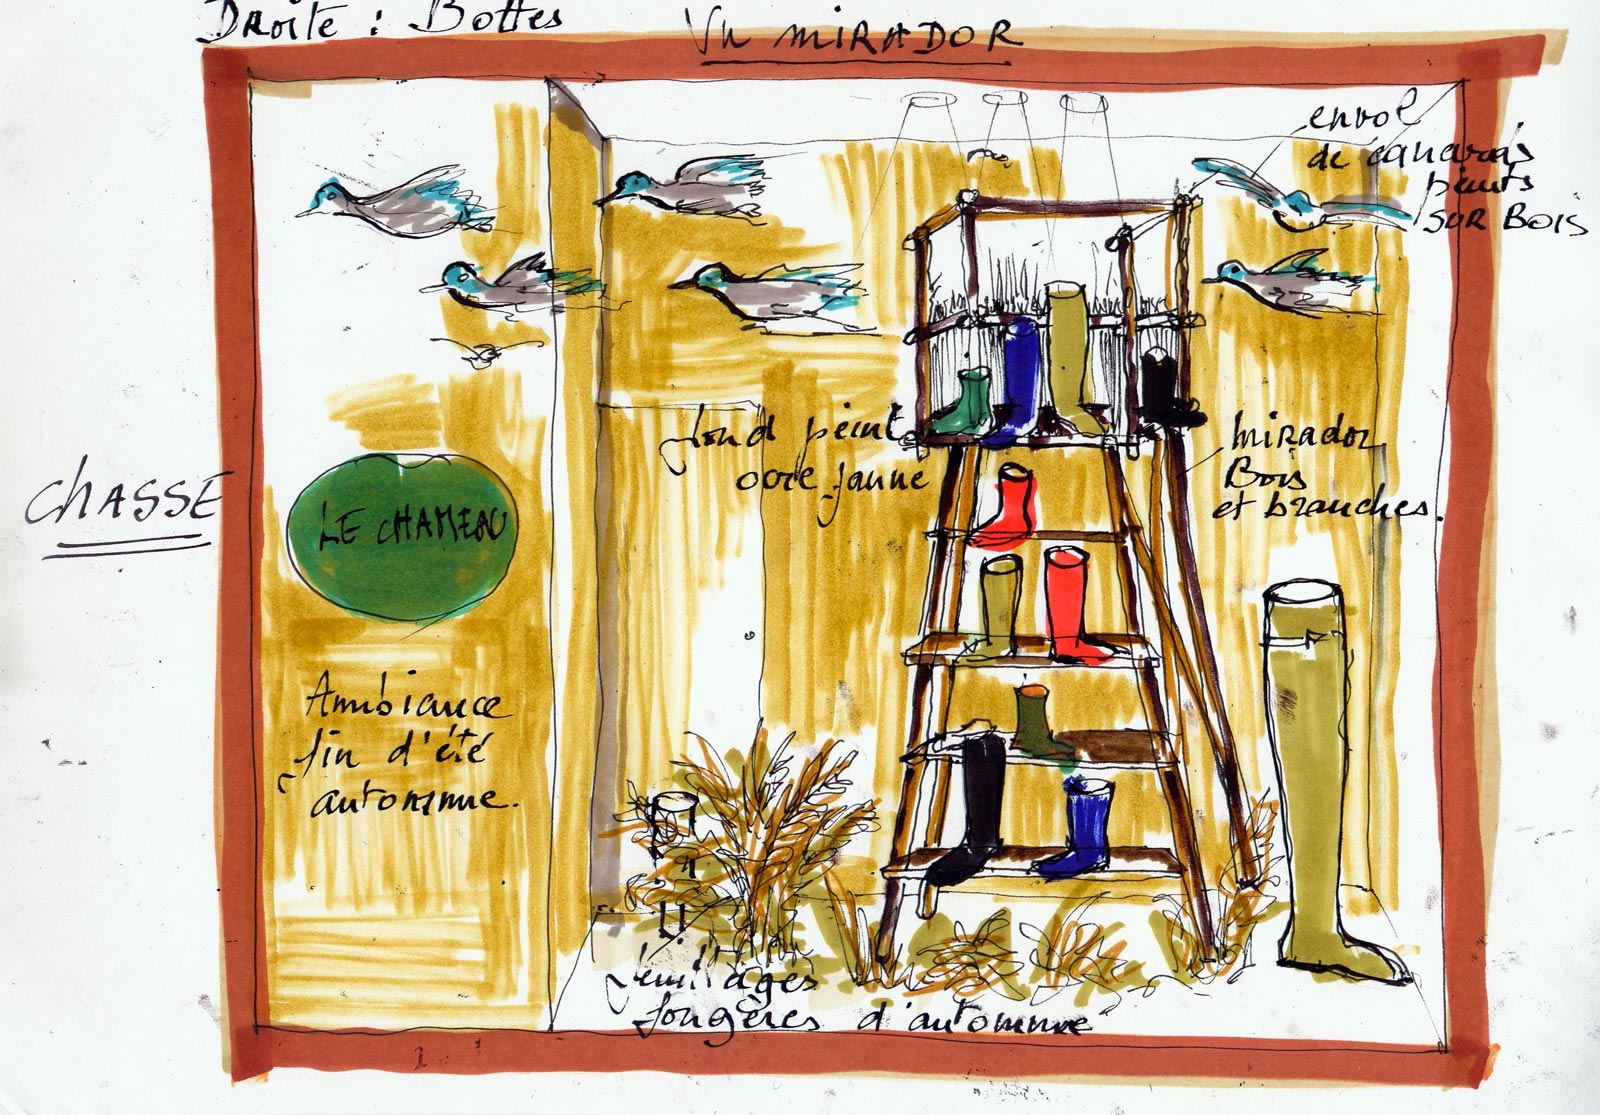 Droite : Bottes
Vu MIRADOR
envol
de canards
peints
SUR BOIS
fond peint
ocre jaune
mirador
Bois
et branches.
CHASSE
LE CHAMEAU
Ambiance
fin d'été
automne.
feuillages
fougères d'automne